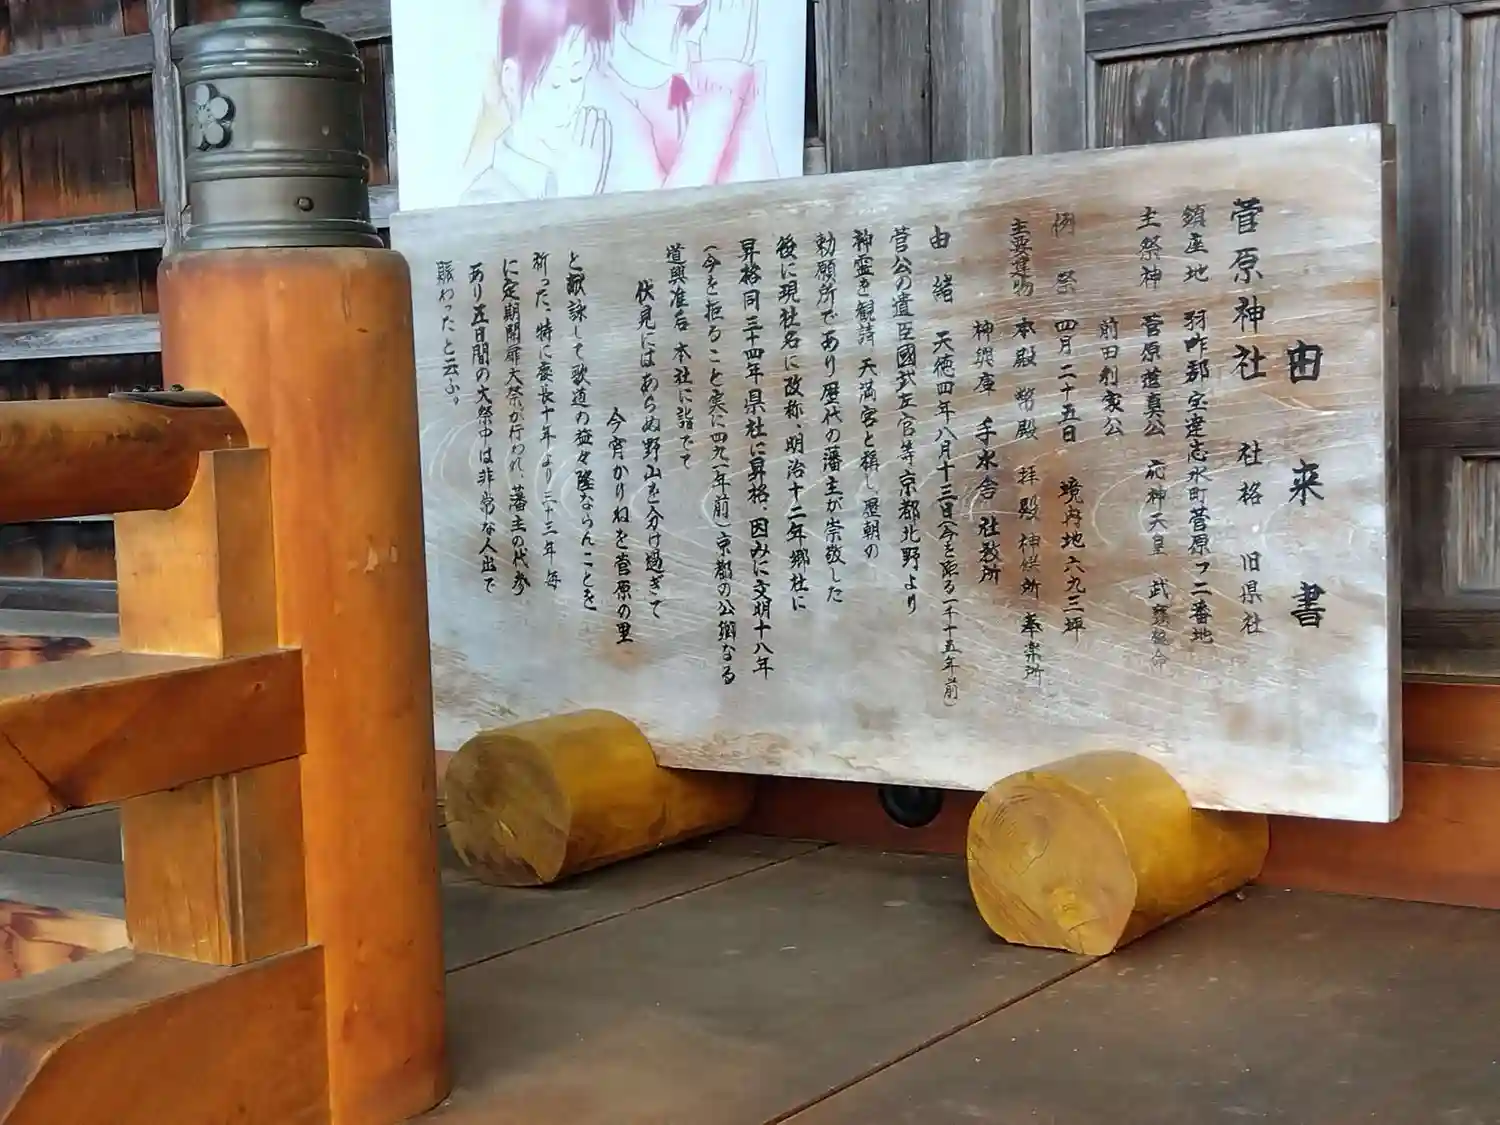 由来書
菅原神社 社格 旧県社
鎮座地 羽咋郡宝達志水町菅原フ二番地
主祭神 菅原道真公 応神天皇 武甕槌命
前田利家公
例祭 四月二十五日 境内地六九三坪
主要建物 本殿 幣殿 拝殿 神饌所 奉楽所
神輿庫 手水舎 社務所
由緒 天徳四年八月十三日(今を距る一千十五年前)
菅公の遺臣國武左官等京都北野より
神霊を観請 天満宮と稱し歴朝の
勅願所であり歴代の藩主が崇敬した
後に現社名に改称、明治十二年郷社に
昇格同三十四年県社に昇格、因みに文明十八年
(今を拒ること実に四九一年前)京都の公綱なる
道興准后 本社に詣でて
伏見にはあらぬ野山を分け過ぎて
今宵かりねを菅原の里
と献詠して歌道の益々隆ならんことを
祈った、特に慶長十年より三十三年毎
に定期開扉大祭が行われ、藩主の代参
あり五日間の大祭中は非常な人出で
賑わったと云ふ。